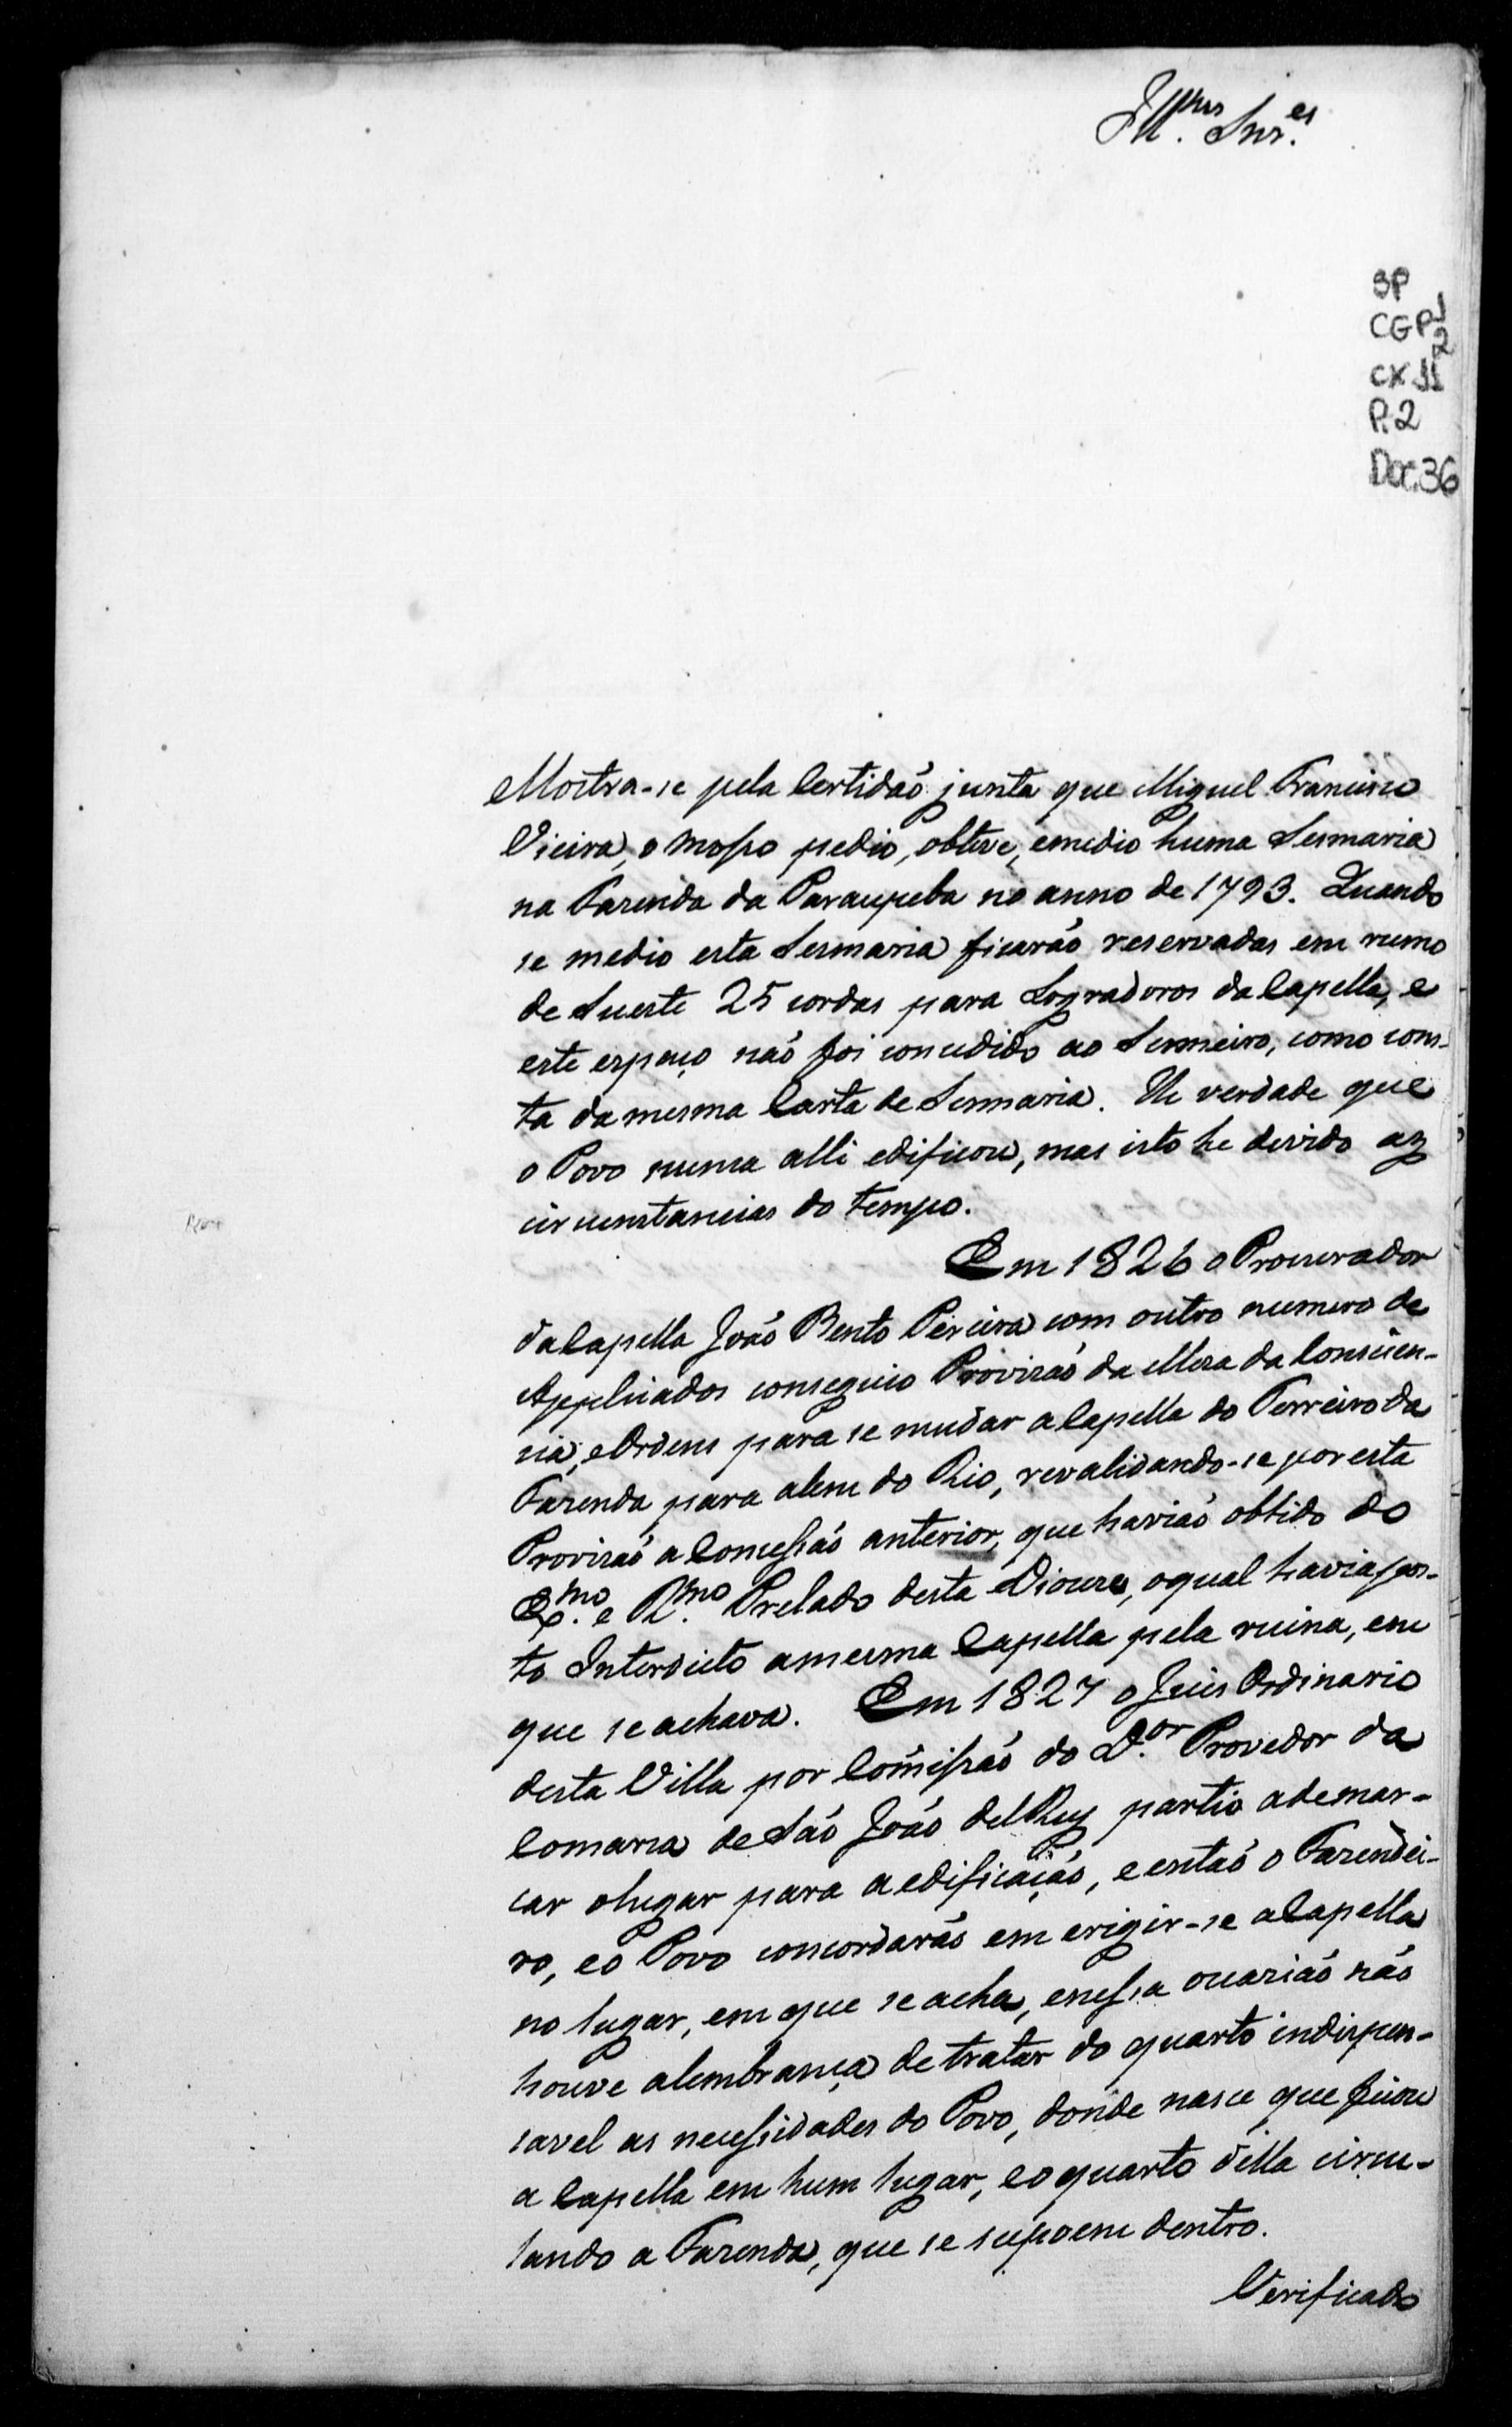 Ill.mos Snr.es
SP
CGP 1/2
CX 11
P. 2
Doc. 36
Mostra-se pela Certidaõ junta que Miguel Francisco
Vieira, o Mosso pedio, obteve, emedio huma Sesmaria
na Fazenda da Paraupeba no anno de 1793. Quando
se medio esta Sesmaria ficaraõ reservadas em rumo
de Sueste 25 cordas para Logradoros da Capella, e
este espaço naõ foi concedido ao Sesmeiro, como cons-
ta da mesma Carta de Sesmaria. He verdade que
o Povo nunca alli edificou, mas isto he devido az
circunstancias do tempo.
Em 1826 o Procurador
da Capella Joaõ Bento Pereira com outro numero de
Applicados conseguio Provizaõ da Meza da Conscien-
cia, e Ordens para se mudar a Capella do Terreiro da
Fazenda para alem do Rio, revalidando-se por esta
Provizaõ a Concessaõ anterior, que haviaõ obtido do
Ex.mo e R.mo Prelado desta Diocese, oqual havia pos-
to Interdicto a mesma Capella pela ruina, em
que se achava. Em 1827 o Juis Ordinario
desta Villa por Comissaõ do D.or Provedor da
Comarca de Saõ Joaõ delRey partio a demar-
car o lugar para a edificaçaõ, e entaõ o Fazendei-
ro, e o Povo concordaraõ em erigir-se a Capella
no lugar, em que se acha, e nessa ocaziaõ naõ
houve a lembrança de tratar do quarto indispen-
savel as necessidades do Povo, donde nasce que ficou
a Capella em hum lugar, e o quarto della circu-
lando a Fazenda, que se supoem dentro.
Verificado